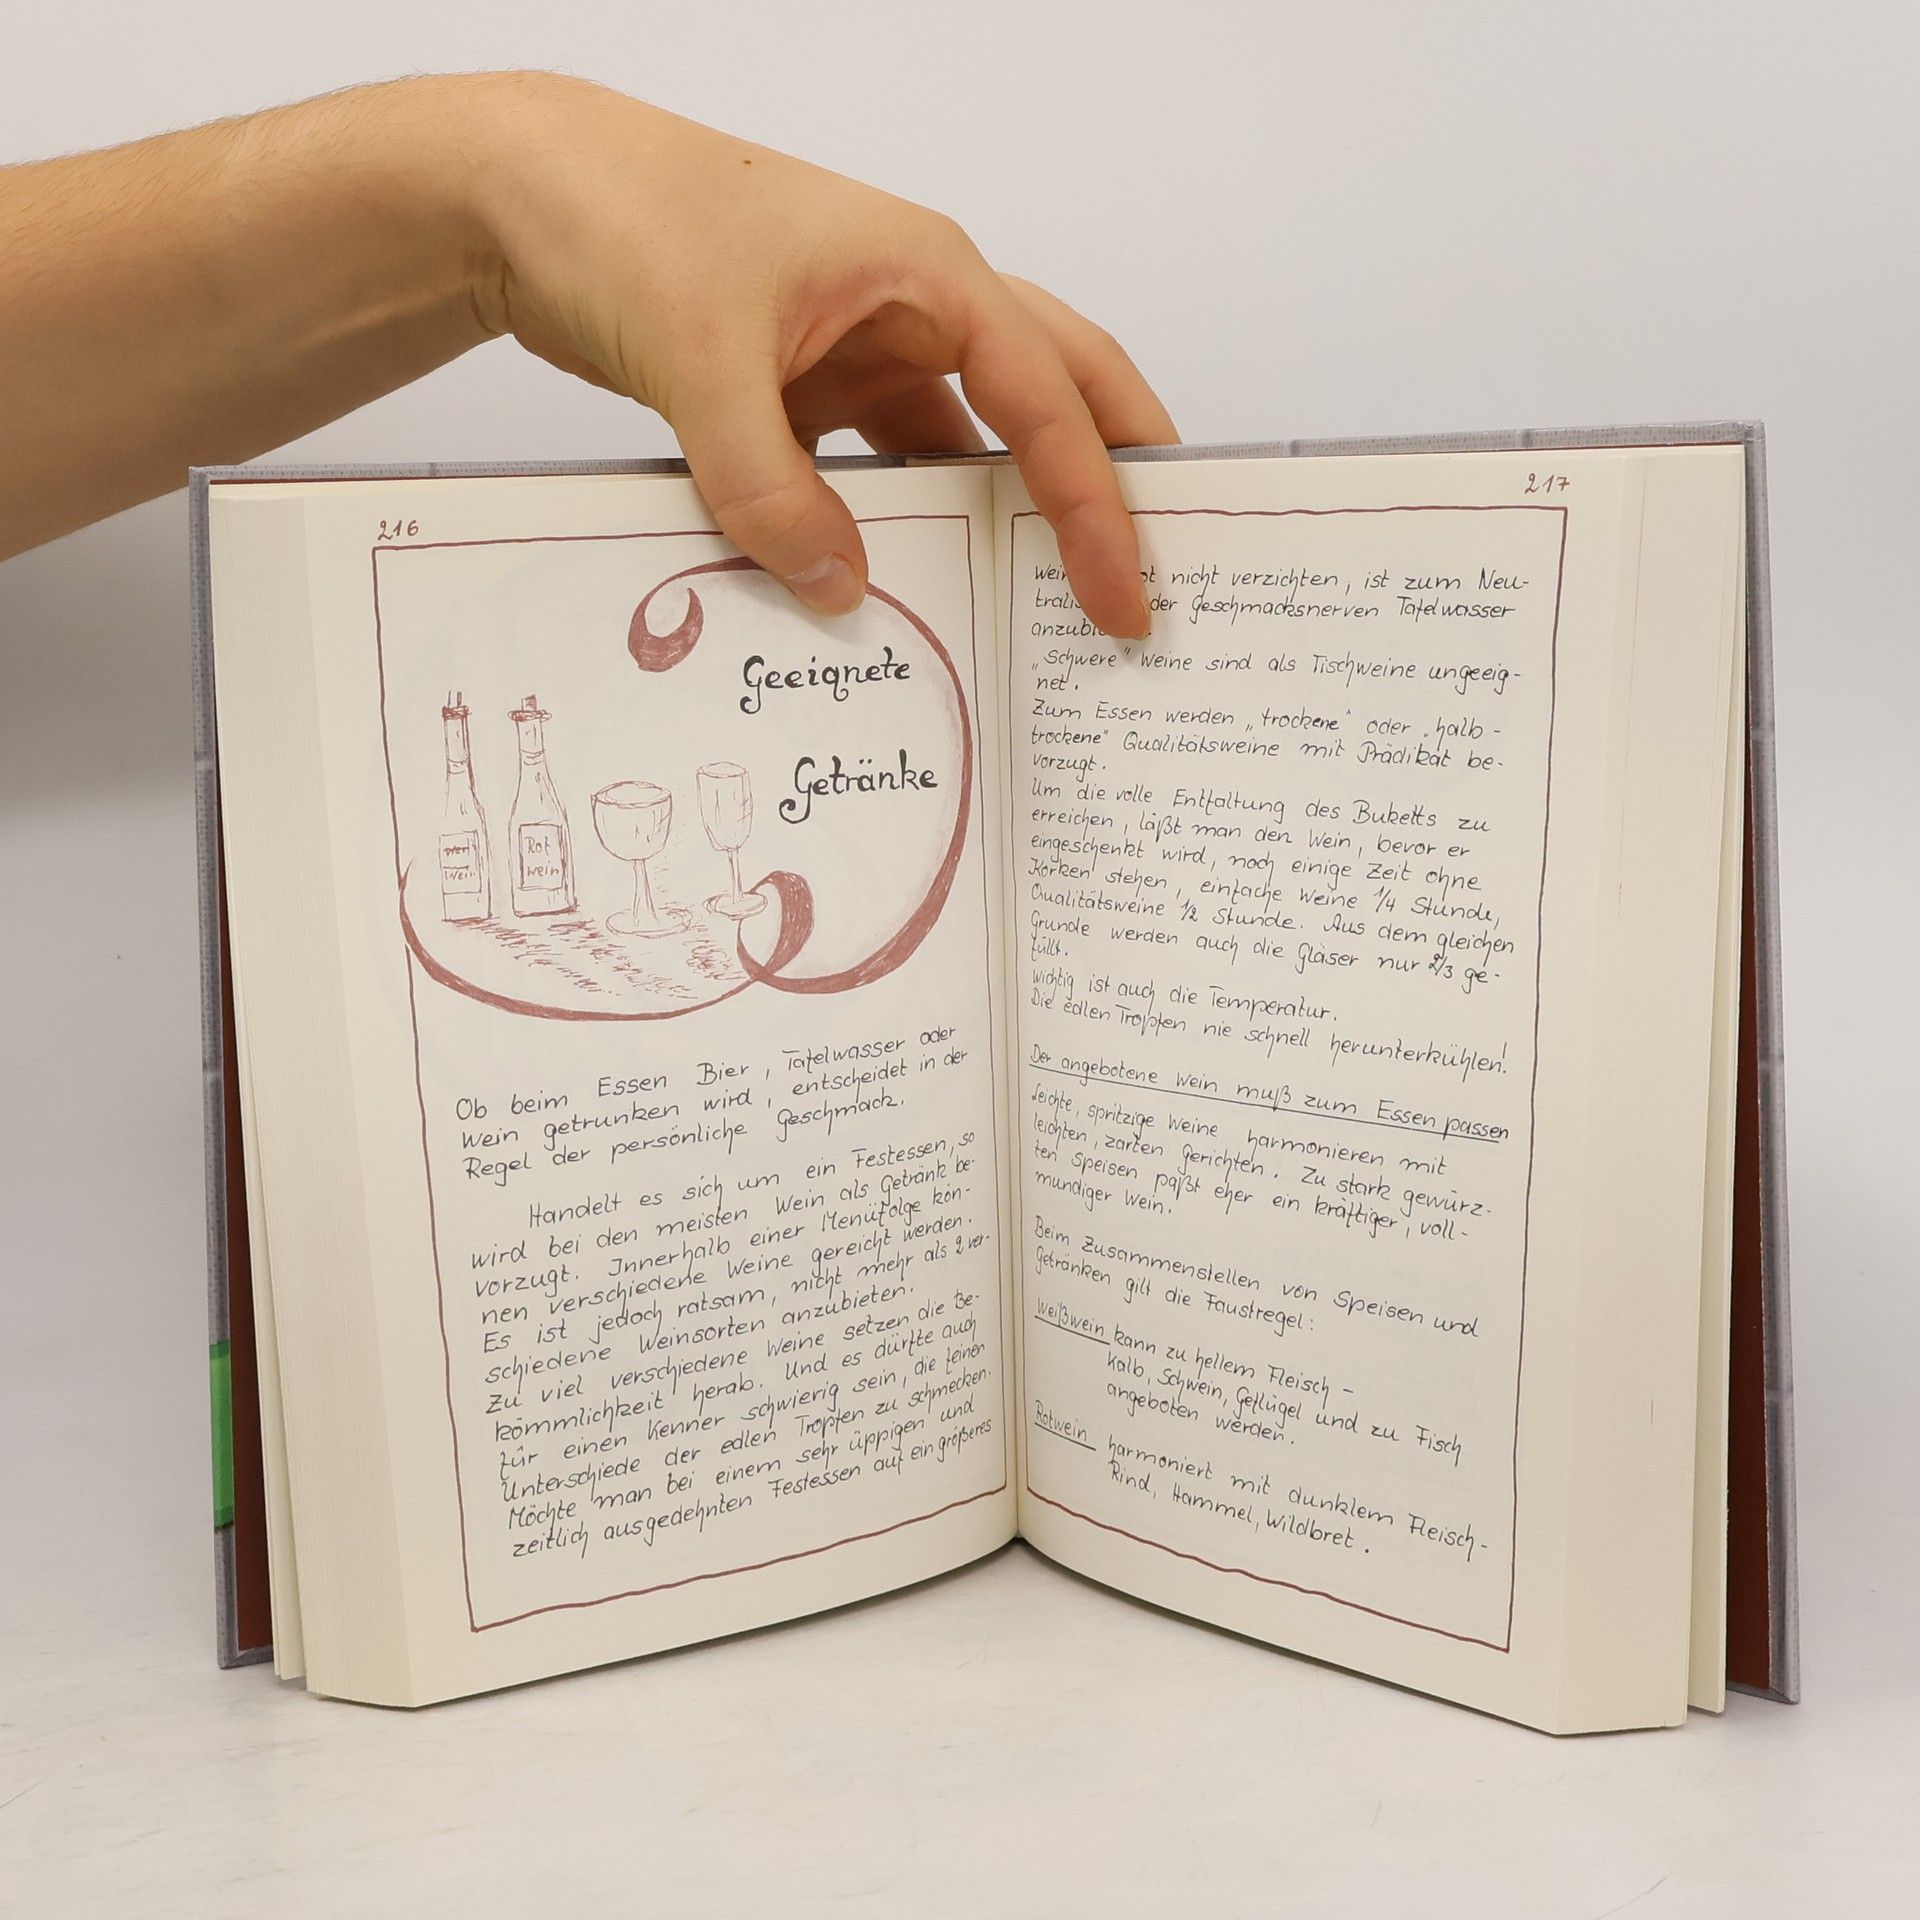 216
Geeignete
Getränke
wein
Rot
wein
Ob beim Essen Bier, Tafelwasser oder
Wein getrunken wird, entscheidet in der
Regel der persönliche Geschmack.
Handelt es sich um ein Festessen, so
wird bei den meisten Wein als Getränk be-
vorzugt. Innerhalb einer Menüfolge kön-
nen verschiedene Weine gereicht werden.
Es ist jedoch ratsam, nicht mehr als 2 ver-
schiedene Weinsorten anzubieten.
Zu viel verschiedene Weine setzen die Be-
kömmlichkeit herab. Und es dürfte auch
für einen Kenner schwierig sein, die feinen
Unterschiede der edlen Tropfen zu schmecken.
Möchte man bei einem sehr üppigen und
zeitlich ausgedehnten Festessen auf ein größeres
217
nicht verzichten, ist zum Neu-
der Geschmacksnerven Tafelwasser
„Schwere" Weine sind als Tischweine ungeeig-
net.
Zum Essen werden „trockene" oder „halb-
trockene" Qualitätsweine mit Prädikat be-
vorzugt.
Um die volle Entfaltung des Buketts zu
erreichen, läßt man den Wein, bevor er
eingeschenkt wird, noch einige Zeit ohne
Korken stehen, einfache Weine 1/4 Stunde,
Qualitätsweine 1/2 Stunde. Aus dem gleichen
Grunde werden auch die Gläser nur 2/3 ge-
füllt.
Wichtig ist auch die Temperatur.
Die edlen Tropfen nie schnell herunterkühlen!
Der angebotene Wein muß zum Essen passen
Leichte, spritzige Weine harmonieren mit
leichten, zarten Gerichten. Zu stark gewürz-
ten Speisen paßt eher ein kräftiger, voll-
mundiger Wein.
Beim Zusammenstellen von Speisen und
Getränken gilt die Faustregel:
Weißwein kann zu hellem Fleisch -
Kalb, Schwein, Geflügel und zu Fisch
angeboten werden.
Rotwein harmoniert mit dunklem Fleisch -
Rind, Hammel, Wildbret.